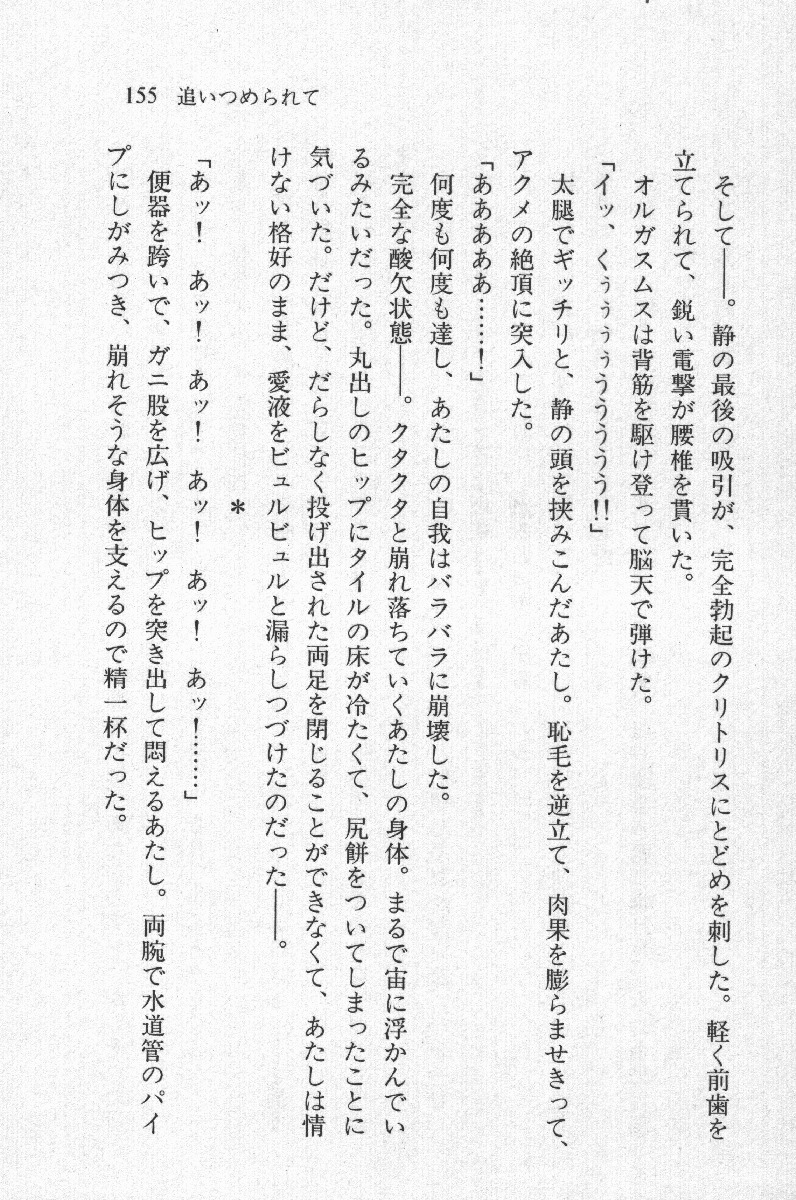 155 追いつめられて
そして――。静の最後の吸引が、完全勃起のクリトリスにとどめを刺した。軽く前歯を
立てられて、鋭い電撃が腰椎を貫いた。
オルガスムスは背筋を駆け登って脳天で弾けた。
「イッ、くぅぅぅうううう!!」
太腿でギッチリと、静の頭を挟みこんだあたし。恥毛を逆立て、肉果を膨らませきって、
アクメの絶頂に突入した。
「あああああ……！」
何度も何度も達し、あたしの自我はバラバラに崩壊した。
完全な酸欠状態――。クタクタと崩れ落ちていくあたしの身体。まるで宙に浮かんでい
るみたいだった。丸出しのヒップにタイルの床が冷たくて、尻餅をついてしまったことに
気づいた。だけど、だらしなく投げ出された両足を閉じることができなくて、あたしは情
けない格好のまま、愛液をビュルビュルと漏らしつづけたのだった――。
＊
「あッ！　あッ！　あッ！　あッ！　あッ！　あッ！……」
便器を跨いで、ガニ股を広げ、ヒップを突き出して悶えるあたし。両腕で水道管のパイ
プにしがみつき、崩れそうな身体を支えるので精一杯だった。